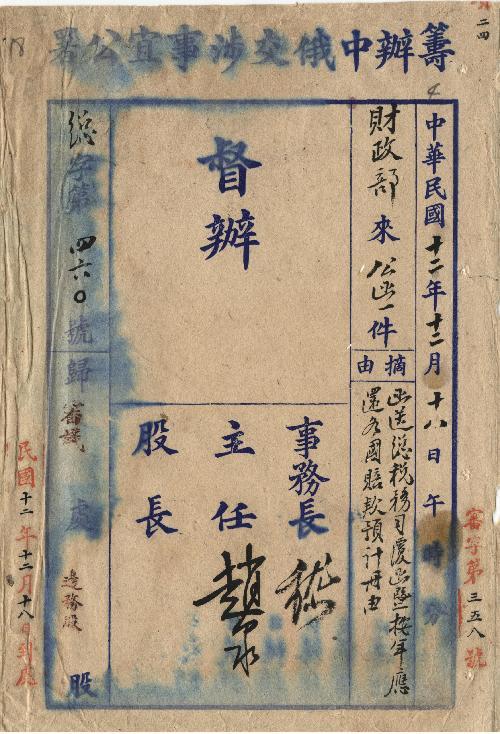 二四
籌辦中俄交涉事宜公署
中華民國十二年十二月十八日午時分
財政部來公函一件
摘由
函送總稅務司覆函暨按年應
還各國賠款預計冊由
督辦
事務長
主任
股長
總字第四六〇號歸審議處邊務股股
審字第三五八號
民國十二年十二月十八日到處